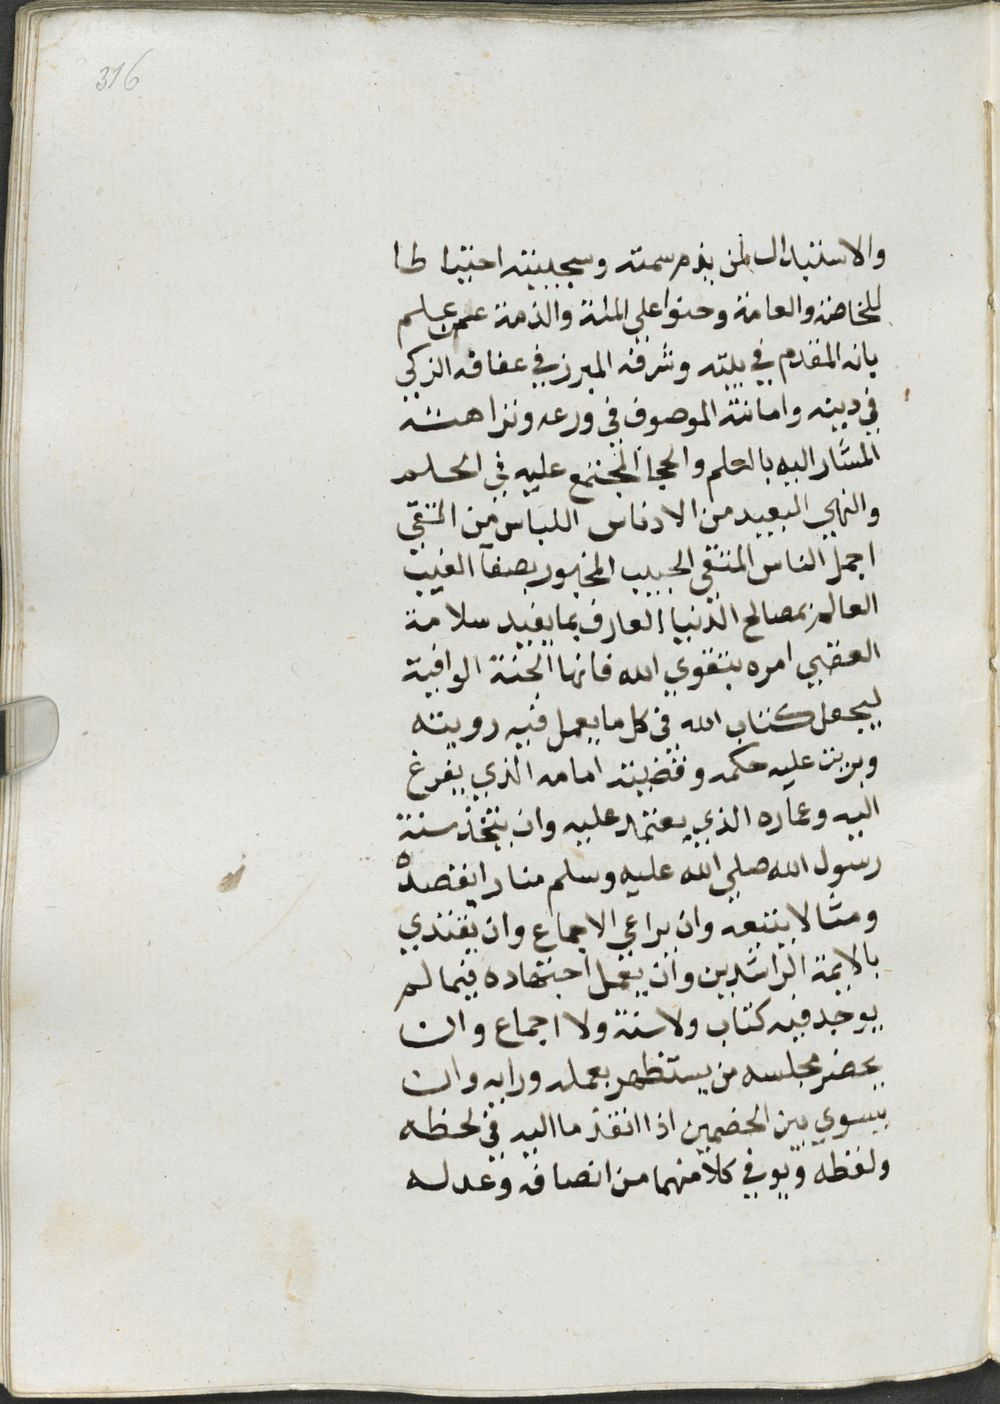 316
والاستبدال لمن يذم سمته وسجيته احتياطا
للخاصة والعامة وحنوا على الملة والذمة عن علم
بانه المقدم في بيته وشرفه المبرز في عفافه الزكي
في دينه وامانته الموصوف في ورعه ونزاهته
المشار اليه بالعلم والحجا المجتمع عليه في الحلم
والنهي البعيد من الادناس اللباس من التقي
اجمل الناس المنتقى الحبيب المخبور بصفآ الغيب
العالم بمصالح الدنيا العارف بما يفيد سلامة
العقبي امره بتقوي الله فانها الجنة الواقية
ليجعل كتاب الله في كل ما يعمل فيه رويته
ويرتب عليه حكمه وقضيته امامه الذي يفرغ
اليه وعماره الذي يعتمد عليه وان يتخذ سنة
رسول الله صلي الله عليه وسلم منارا يقصده
ومثالا يتبعه وان يراعي الاجماع وان يقتدي
بالايمة الراشدين وان يعمل اجتهاده فيما لم
يوجد فيه كتاب ولا سنة ولا اجماع وان
يحضر مجلسه من يستظهر بعمله ورايه وان
يسوي بين الخصمين اذا اتقدما اليه في لحظه
ولفظه ويوفي كلا منهما من انصافه وعدله